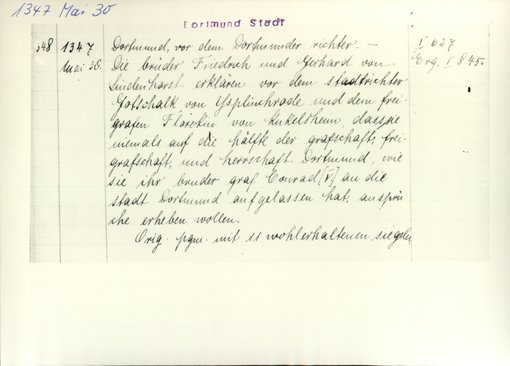 1347 Mai 30
Dortmund Stadt
248 1347 Mai 30. Dortmund, vor dem Dortmunder richter. — I 627
Die brüder Friedrich und Gerhard von Erg. I 845.
Lindenhorst erklären vor dem stadtrichter
Gotschalk von Ysplinchrode und dem frei-
grafen von Kukelshem, dass sie
niemals auf die hälfte der grafschaft, frei-
grafschaft, und herrschaft Dortmund, wie
sie ihr bruder graf Conrad [V.] an die
stadt Dortmund aufgelassen hat, ansprü-
che erheben wollen.
Orig. pgm. mit 11 wohlerhaltenen siegeln